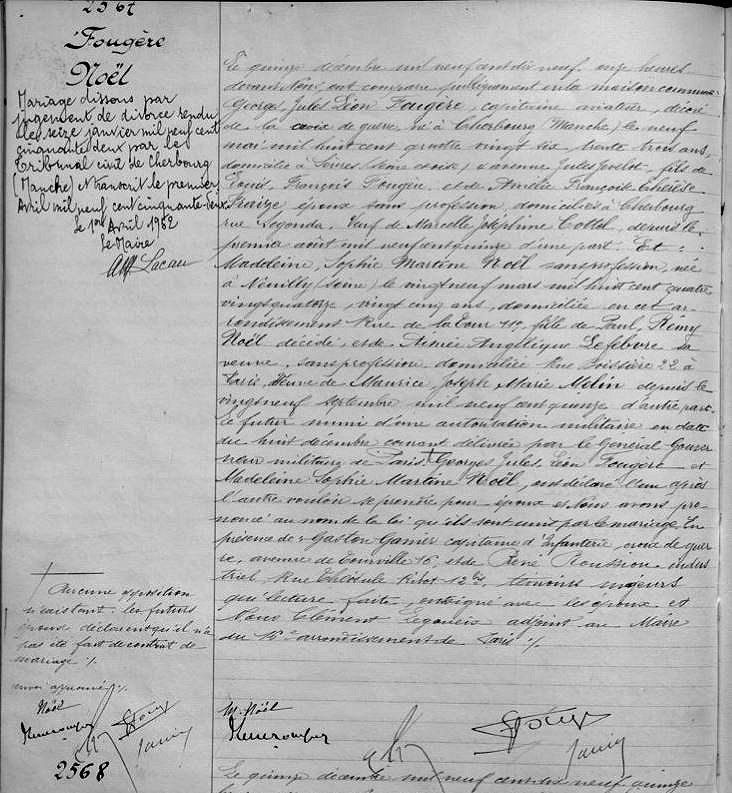 2567
Fougère
Noël
Mariage dissous par
jugement de divorce rendu
le seize janvier mil neuf cent
cinquante deux par le
Tribunal civil de Cherbourg
(Manche) transcrit le premier
Avril mil neuf cent cinquante-deux
le 1er Avril 1952
Le Maire
Lacau
Le quinze décembre mil neuf cent dix neuf, onze heures
devant Nous, ont comparu publiquement en la maison commune
Georges Jules Léon Fougère, capitaine aviateur, décoré
de la croix de guerre, né à Cherbourg (Manche) le neuf
mai mil huit cent quatre vingt six, trente trois ans,
domicilié à Sèvres (Seine et Oise) avenue Jules, fils de
Louis, François Fougère et de Amélie Françoise Thérèse
époux sans profession, domiciliés à Cherbourg
rue Segondat. Veuf de Marcelle Joséphine Cottel, depuis le
premier août mil neuf cent quinze d'une part. Et :
Madeleine, Sophie Martine Noël sans profession, née
à Neuilly (Seine) le vingt neuf mars mil huit cent quatre
vingt quatorze, vingt cinq ans, domiciliée en cet ar-
rondissement Rue de la Tour, fille de Paul, Rémy
Noël décédé, et de Aimée Angélique Lefebvre sa
veuve, sans profession domiciliée Rue Boissière 22 à
Paris. Veuve de Maurice, Joseph Marie Melin depuis le
vingt neuf septembre mil neuf cent quinze d'autre part.
Le futur muni d'une autorisation militaire en date
du huit décembre courant délivrée par le Général Gouver
neur militaire de Paris. + Georges Jules Léon Fougère et
Madeleine Sophie Martine Noël, ont déclaré l'un après
l'autre vouloir se prendre pour époux et Nous avons pro-
noncé au nom de la loi qu'ils sont unis par le mariage. En
présence de : Gaston Garnier capitaine d'Infanterie, croix de guer
re, avenue de Tourville 16, et de René Roussion, indus
triel, Rue Théodule Ribot 12, témoins majeurs
qui lecture faite, ont signé avec les époux et
Nous Clément adjoint au Maire
du 16e arrondissement de Paris ./.
+ Aucune opposition
n'existant. les futurs
époux déclarent qu'il n'a
pas été fait de contrat de
mariage ./.
renvoi approuvé ./.
Noël
M. Noël
2568
Le quinze décembre mil neuf cent dix neuf, quinze